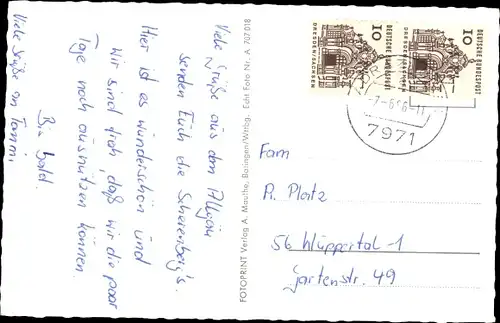 Viele Grüße aus dem Allgäu
senden Euch die Scherenberg's.
Hier ist es wunderschön und
wir sind froh, daß wir die paar
Tage noch ausnützen können.
Bis bald.
Viele Grüße an Tammi
FOTOPRINT Verlag A. Mauthe, Balingen/Württbg. Echt Foto Nr. A 707018
DEUTSCHE BUNDESPOST
10
DRESDEN/SACHSEN
DEUTSCHE BUNDESPOST
10
DRESDEN/SACHSEN
7971
Fam
R. Platz
56 Wuppertal-1
Gartenstr. 49